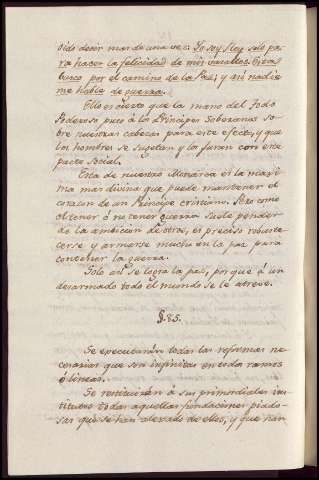 oido decir mas de una vez: Yo soy Rey solo pa-
ra hacer la felicidad de mis vasallos. Esta
busco por el camino de la Paz; y asi nadie
me hable de guerra.
Ello es cierto que la mano del Todo
Poderoso puso á los Principes Soberanos so-
bre nuestras cabezas para este efecto, y que
los hombres se sugetan y los juran con este
pacto social.
Esta de nuestro Monarca es la maxi-
ma mas divina que puede mantener el
corazon de un Principe cristiano. Pero como
el tener ó no tener guerra suele pender
de la ambicion de otros, es preciso robuste-
cerse y armarse mucho en la paz para
contener la guerra.
Solo asi se logra la paz, porque á un
desarmado todo el mundo se le atreve.
§. 85.
Se executarán todas las reformas ne-
cesarias que son infinitas en todo ramos
ó lineas.
Se restituirán á sus primordiales ins-
titutos todas aquellas fundaciones piado-
sas que se han alexado de ellos, y que han